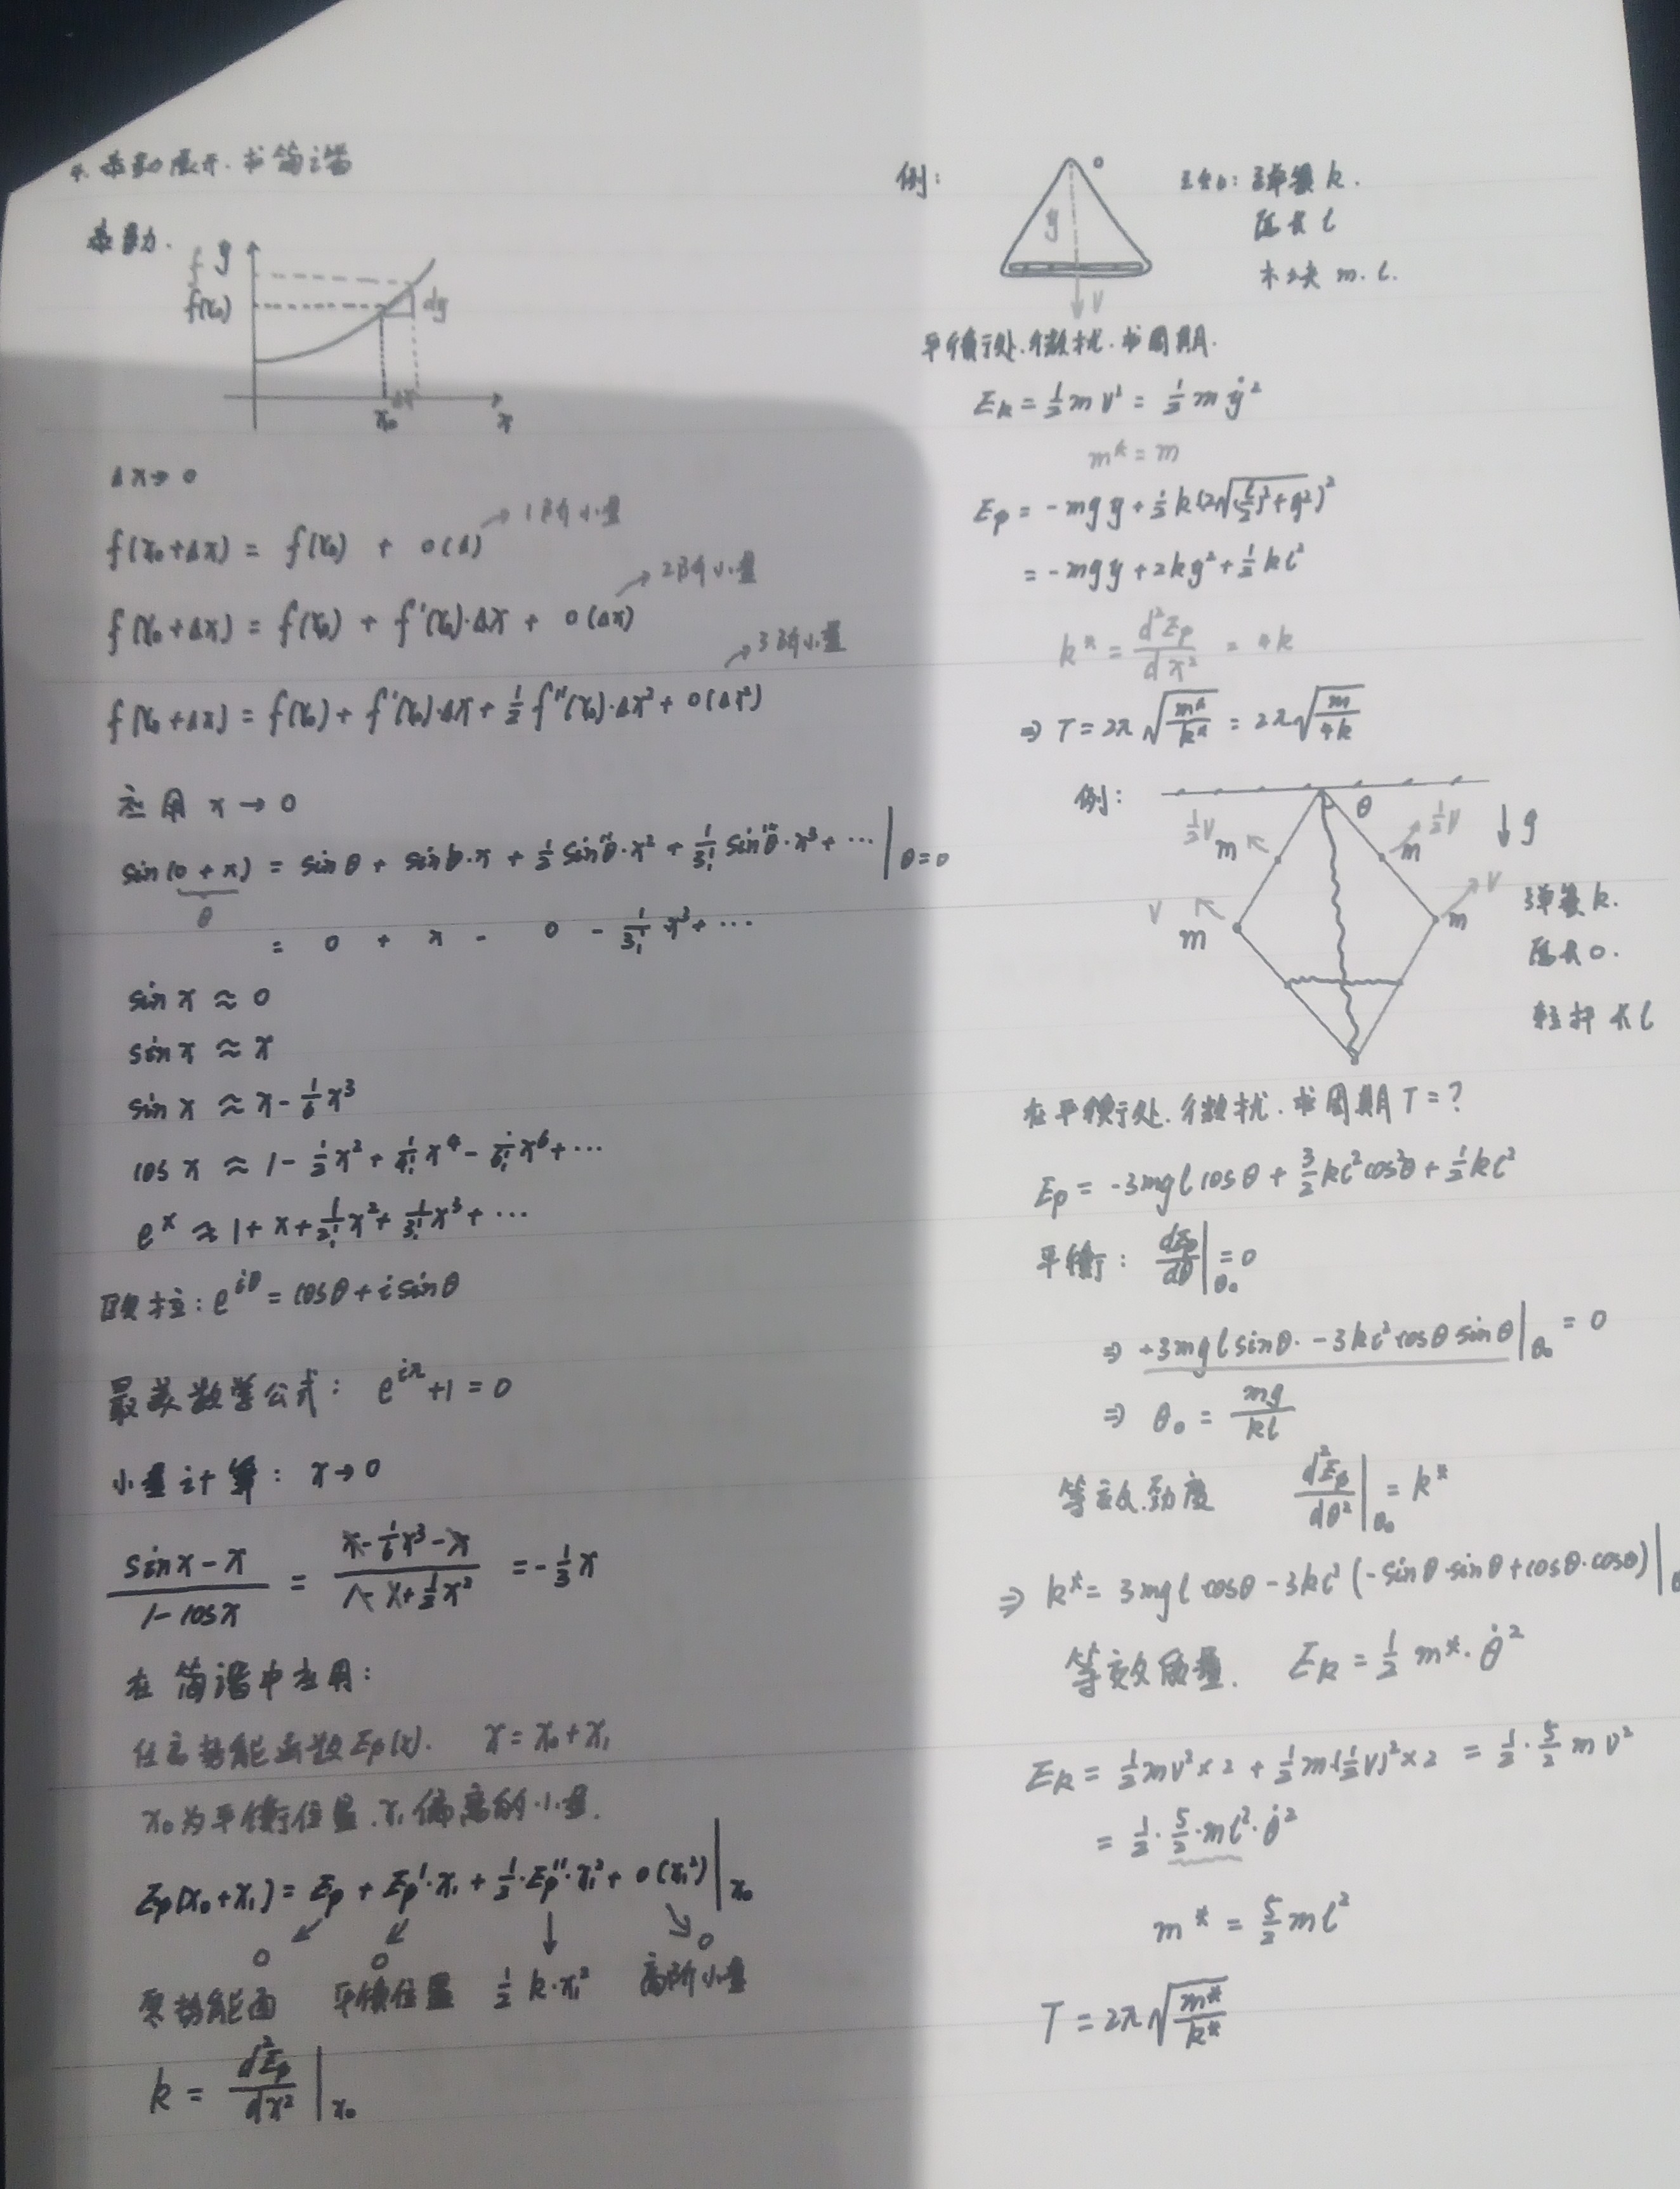 4. 泰勒展开.求简谐
泰勒.
f y
f(x₀)
dy
x₀ Δx x
Δx→0
f(x₀+Δx) = f(x₀) + o(Δ) ↗1阶小量
f(x₀+Δx) = f(x₀) + f'(x₀)·Δx + o(Δx) ↗2阶小量
f(x₀+Δx) = f(x₀) + f'(x₀)·Δx + ½ f''(x₀)·Δx² + o(Δx²) ↗3阶小量
应用 x→0
sin(0+x) = sinθ + sin'θ·x + ½ sin''θ·x² + 1/3! sin'''θ·x³ + ⋯ |θ=0
θ
= 0 + x - 0 - 1/3! x³ + ⋯
sin x ≈ 0
sin x ≈ x
sin x ≈ x - 1/6 x³
cos x ≈ 1 - ½x² + 1/4! x⁴ - 1/6! x⁶ + ⋯
eˣ ≈ 1 + x + 1/2! x² + 1/3! x³ + ⋯
欧拉: e^{iθ} = cosθ + i sinθ
最美数学公式: e^{iπ} + 1 = 0
小量计算: x→0
(sin x - x)/(1 - cos x) = (x - 1/6 x³ - x)/(1 - 1 + ½x²) = -⅓x
在简谐中应用:
任意势能函数Ep(x). x = x₀ + x₁
x₀为平衡位置.x₁偏离的小量.
Ep(x₀+x₁) = Ep + Ep'·x₁ + ½·Ep''·x₁² + o(x₁²) |x₀
0 0 0
零势能面 平衡位置 ½ k·x₁² 高阶小量
k = d²Ep/dx² |x₀
例: o
y
v
已知: 弹簧 k.
原长 l
木块 m. l.
平衡处.微扰.求周期.
Ek = ½mv² = ½mẏ²
m* = m
Ep = -mgy + ½k(2√((l/2)²+y²))²
= -mgy + 2ky² + ½kl²
k* = d²Ep/dx² = 4k
⇒ T = 2π√(m*/k*) = 2π√(m/4k)
例:
θ
½v m
½v m
↓g
v m
v m
弹簧k.
原长0.
轻杆长l
在平衡处.微扰.求周期T=?
Ep = -3mgl cosθ + 3/2 kl²cos²θ + ½kl²
平衡: dEp/dθ |θ₀ = 0
⇒ +3mgl sinθ· - 3kl²cosθ sinθ |θ₀ = 0
⇒ θ₀ = mg/kl
等效劲度 d²Ep/dθ² |θ₀ = k*
⇒ k* = 3mgl cosθ - 3kl²(-sinθ·sinθ + cosθ·cosθ) |θ
等效质量. Ek = ½ m*·θ̇²
Ek = ½mv²×2 + ½m(½v)²×2 = ½·5/2 mv²
= ½·5/2·ml²·θ̇²
m* = 5/2 ml²
T = 2π√(m*/k*)